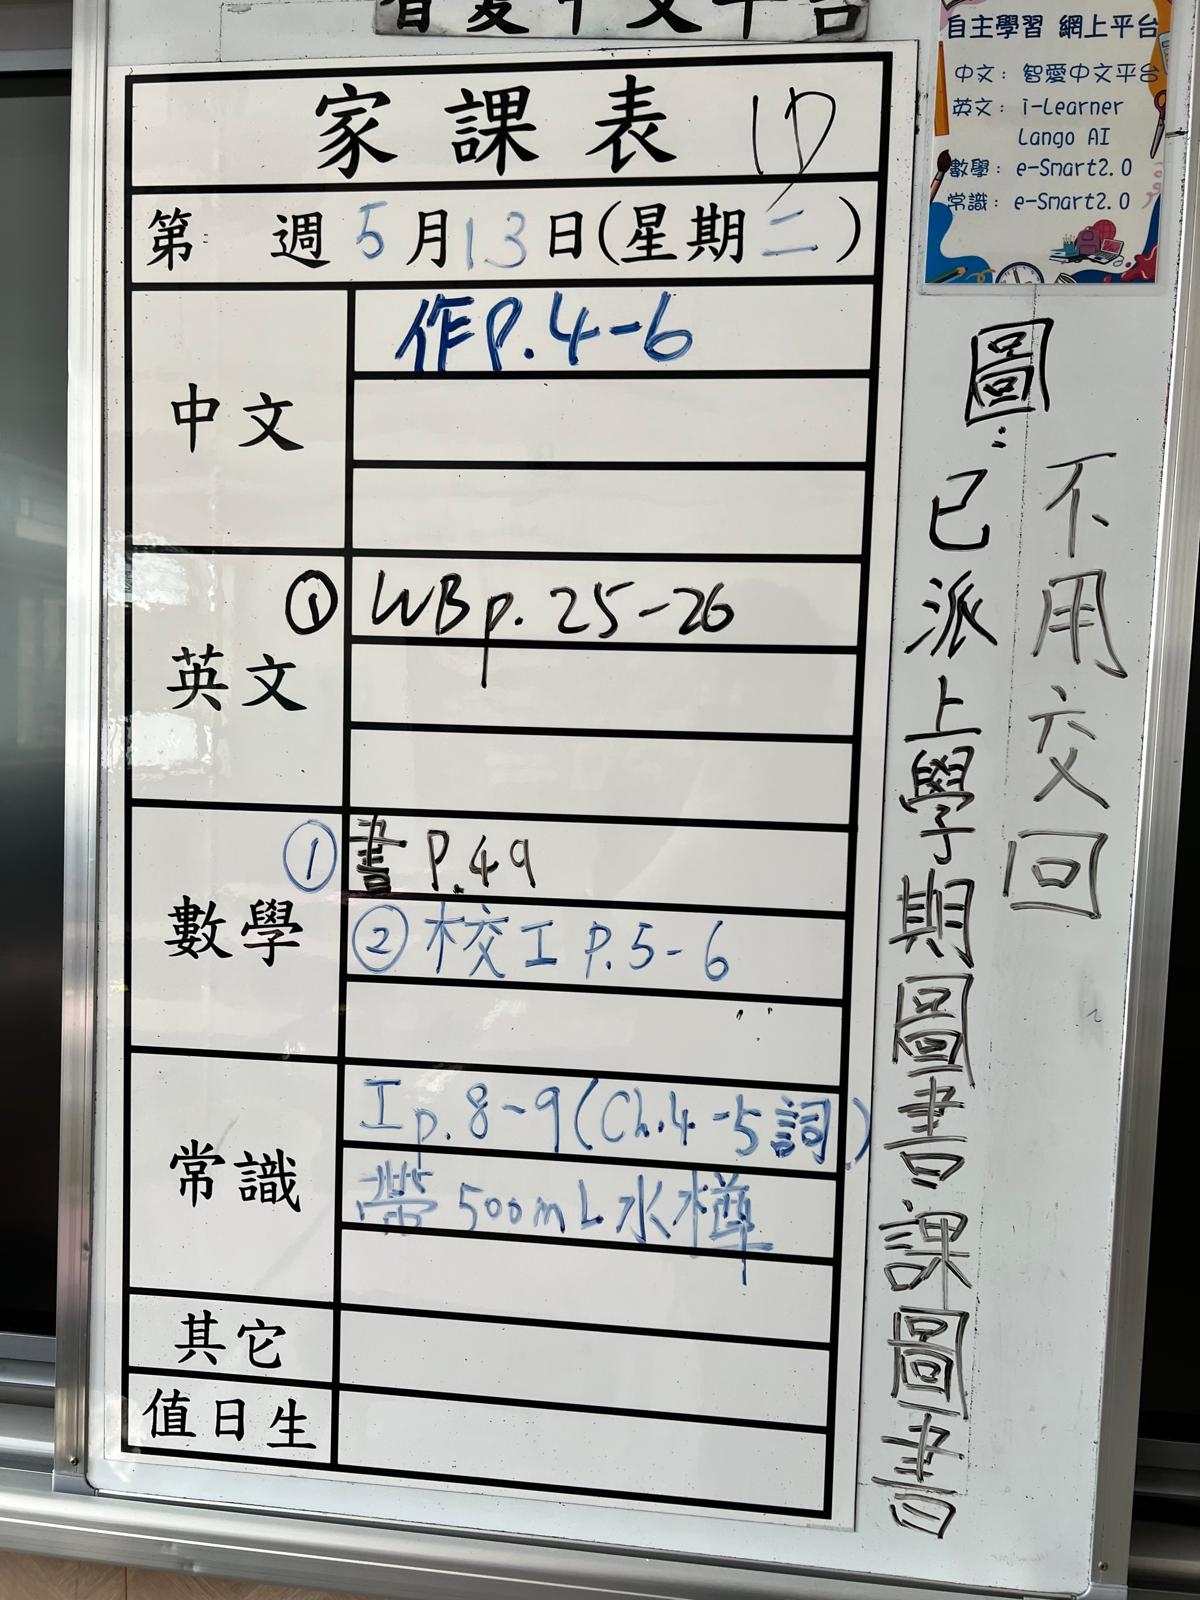 智愛中文平台
自主學習 網上平台
中文：智愛中文平台
英文：i-Learner
Lango AI
數學：e-Smart2.0
常識：e-Smart2.0
家課表
第 週 5月13日(星期二)
中文
作P.4-6
英文
① WB p.25-26
數學
① 書 P.49
② 校工 P.5-6
常識
工p.8-9(Ch.4-5詞)
帶500mL水樽
其它
值日生
圖：
已派上學期圖書課圖書
不用交回